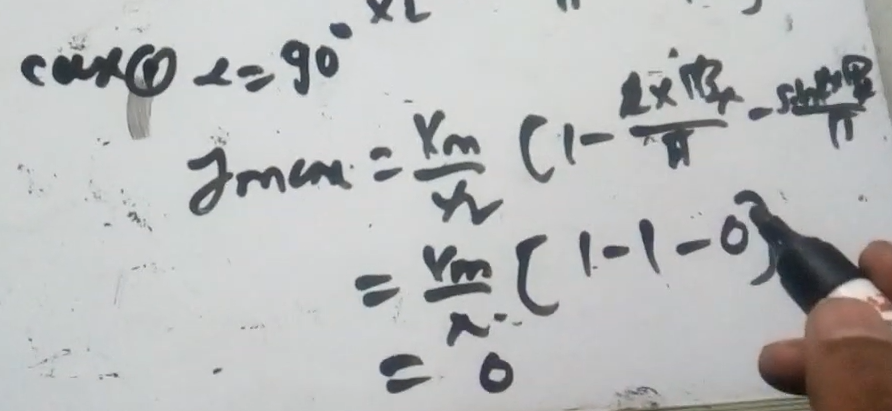 case ① α = 90°
I max = Vm/XL (1 - 2×π/2/π - sin2×π/2/π
= Vm/X (1 - 1 - 0)
= 0